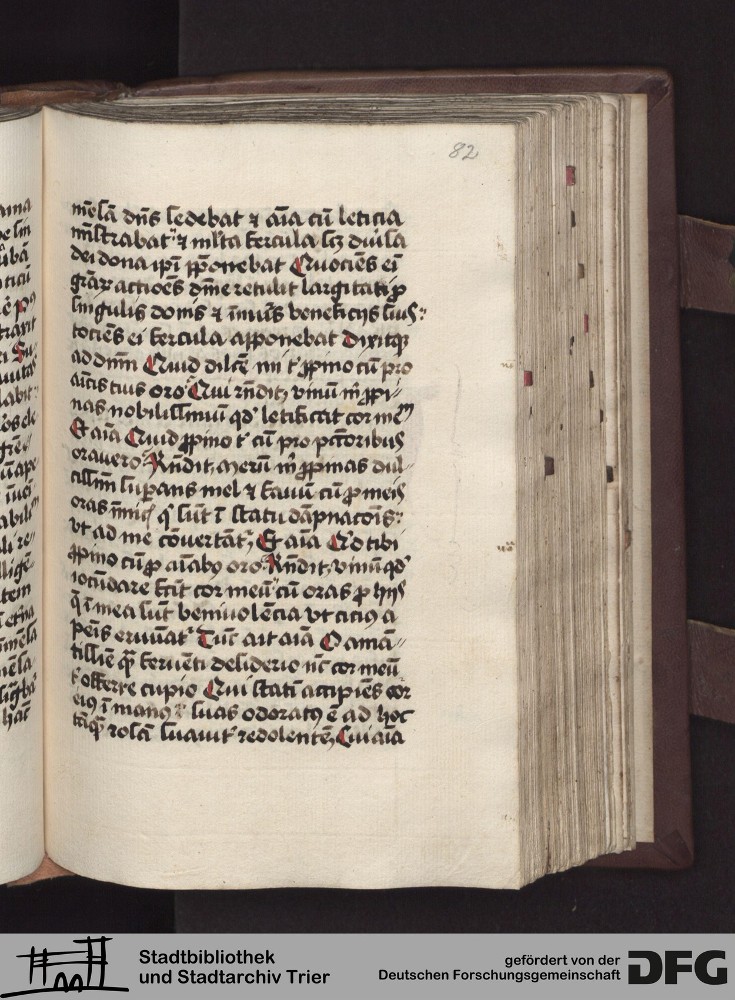 82
mēsā dn̄s sedebat ⁊ aīa cū leticia
mīstrabat ⁊ ml̄ta fercula scꝫ diūsa
dei dona ipī ꝓponebat Quociēs eī
graꝝ actiōēs dn̄e retulit largitati ꝓ
singulis donis ⁊ īnūīs beneficijs suis
tociēs ei fercula apponebat Dixitqꝫ
ad dn̄m Quid dilcē mi t' ꝓpino cū pro
amīcis tuis oro Qui rn̄dit vinū m' ꝓpi-
nas nobilissimū qd' letificat cor meū
Et aīa Quid ꝓpino t' cū pro pctōribus
orauero Rn̄dit merū m' ꝓpinas dul-
cissim̄ suꝑans mel ⁊ fauū cū ꝓ meis
oras inīmicis q' sūt ī statu dāpnacōis
vt ad me cōuertāt' Et aīa Qd tibi
ꝓpino cū ꝓ aīabꝫ oro Rn̄dit vinū qd'
iocūdare facit cor meū cū oras ꝓ hijs
q̄ ī mea sūt beniuolēcia vt citiꝰ a
penis eruāt' Tūc ait aīa O amā-
tissie q̄ feruēti desiderio nūc cor meū
t' offerre cupio Qui statī accipiēs cor
eiꝰ ī manꝰ suas odoratꝰ ē ad hoc
tāqꝫ rosā suauit' redolentē Cui aīa
Stadtbibliothek
und Stadtarchiv Trier
gefördert von der
Deutschen Forschungsgemeinschaft
DFG